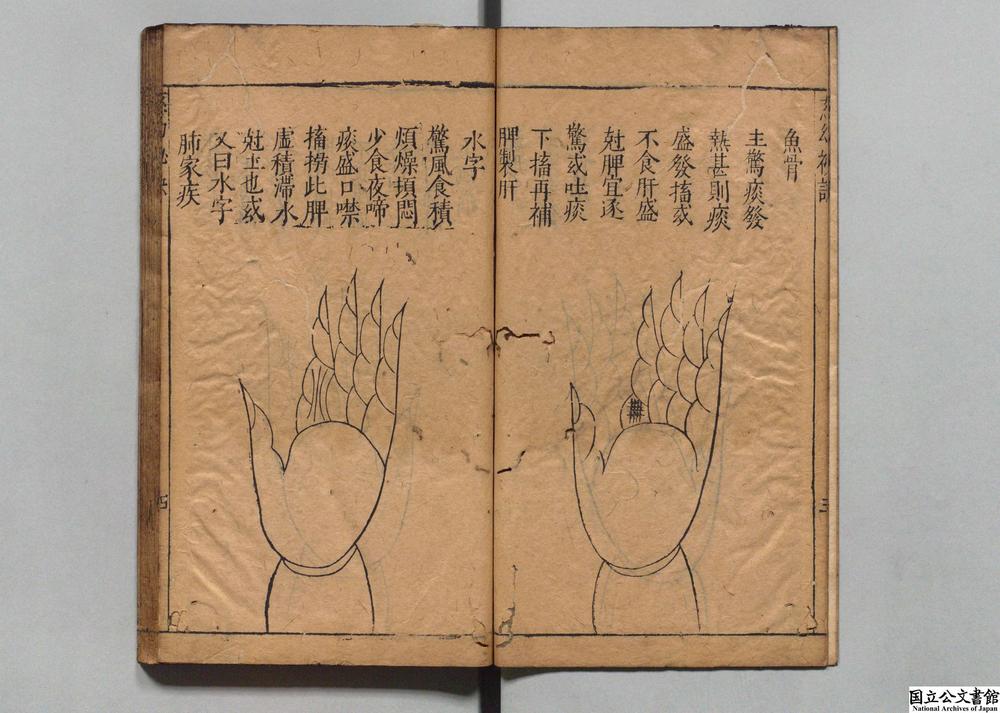 魚骨
主驚痰發
熱甚則痰
盛發搐或
不食肝盛
尅脾宜逐
驚或吐痰
下搐再補
脾製肝
水字
驚風食積
煩燥頓悶
少食夜啼
痰盛口噤
搐搦此脾
虛積滯水
尅土也或
又曰水字
肺家疾
国立公文書館
National Archives of Japan